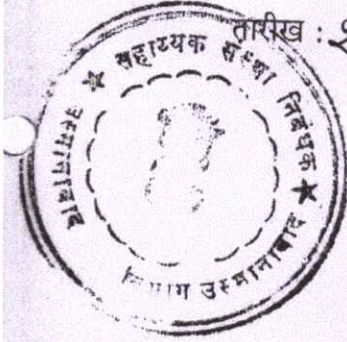 तारीख :
★ सहाय्यक संस्था निबंधक ★
विभाग उस्मानाबाद
उस्मानाबाद